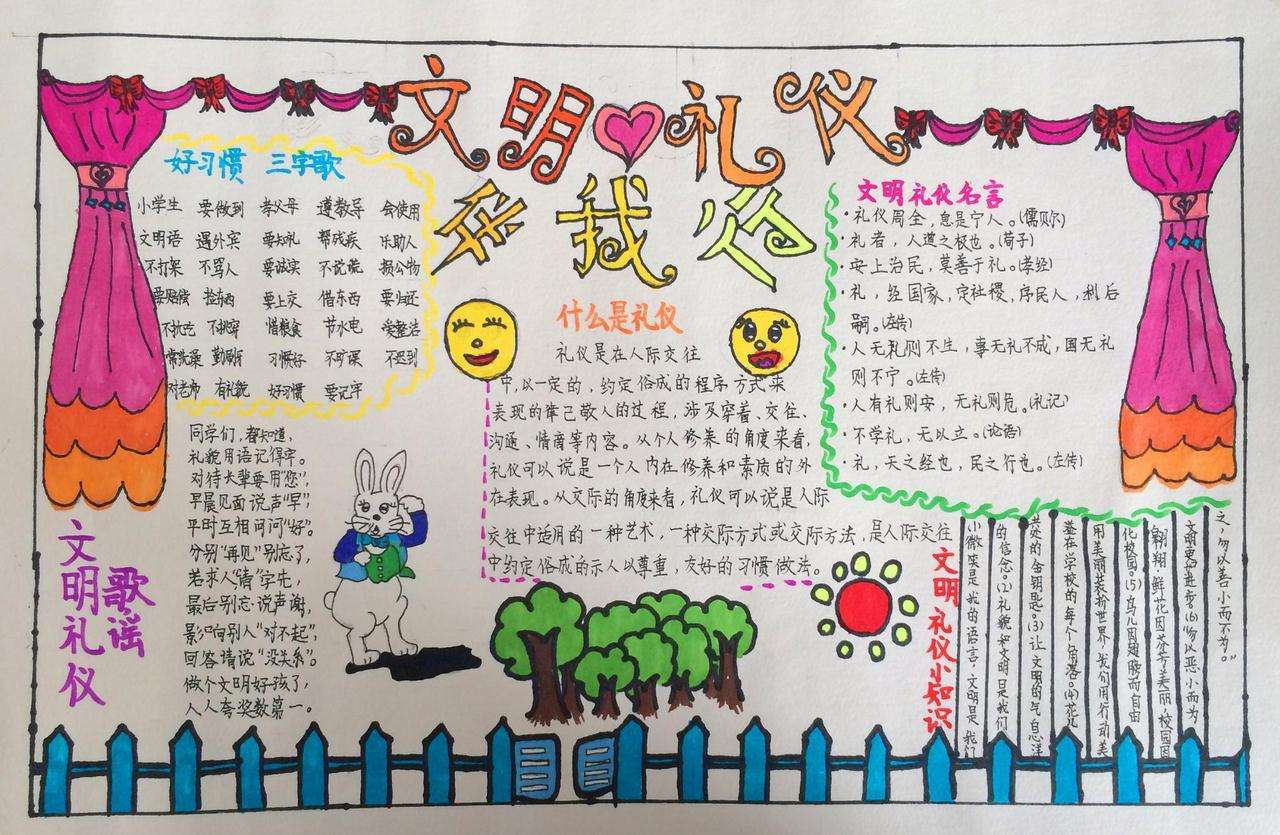 文明礼仪
我
好习惯 三字歌
小学生 要做到 孝父母 遵教导 会使用
文明语 遇外宾 要知礼 帮残疾 乐助人
不打架 不骂人 要诚实 不说谎 损公物
要赔偿 拾东西 要上交 借东西 要归还
惜粮食 节水电 爱整洁
常洗澡 勤刷牙 习惯好 不旷课 不迟到
对老师 有礼貌 好习惯 要记牢
文明礼仪
歌谣
同学们,都知道,
礼貌用语记得牢。
对待长辈要用“您”,
早晨见面说声“早”,
平时互相问问“好”。
分别“再见”别忘了,
若求人“请”字先,
最后别忘说声谢,
影响别人“对不起”,
回答请说“没关系”。
做个文明好孩子,
人人夸奖数第一。
什么是礼仪
礼仪是在人际交往
中,以一定的,约定俗成的程序方式来
表现的律己敬人的过程,涉及穿着、交往、
沟通、情商等内容。从个人修养的角度来看,
礼仪可以说是一个人内在修养和素质的外
在表现。从交际的角度来看,礼仪可以说是人际
交往中适用的一种艺术,一种交际方式或交际方法,是人际交往
中约定俗成的示人以尊重,友好的习惯做法。
文明礼仪名言
·礼仪周全,息是宁人。(儒贝尔)
·礼者,人道之极也。(荀子)
·安上治民,莫善于礼。(孝经)
·礼,经国家,定社稷,序民人,利后
嗣。(左传)
·人无礼则不生,事无礼不成,国无礼
则不宁。(左传)
·人有礼则安,无礼则危。(礼记)
·不学礼,无以立。(论语)
·礼,天之经也,民之行也。(左传)
文明礼仪小知识
小微笑是我的语言,文明是我们
的信念。(2)礼貌和文明是我们
共处的金钥匙。(3)让文明的气息洋
溢在学校的每个角落。(4)花儿
用美丽装扮世界,我们用行动美
化校园。(5)鸟儿因翅膀而自由
翱翔,鲜花因芬芳美丽,校园因
文明更加进步。(6)“勿以恶小而为
之,勿以善小而不为。”